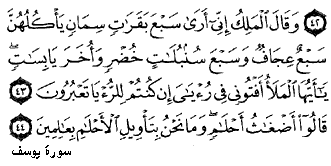 ٤٢ وَقَالَ ٱلْمَلِكُ إِنِّىٓ أَرَىٰ سَبْعَ بَقَرَٰتٍ سِمَانٍ يَأْكُلُهُنَّ
سَبْعٌ عِجَافٌ وَسَبْعَ سُنۢبُلَٰتٍ خُضْرٍ وَأُخَرَ يَابِسَٰتٍ ۖ
يَٰٓأَيُّهَا ٱلْمَلَأُ أَفْتُونِى فِى رُءْيَٰىَ إِن كُنتُمْ لِلرُّءْيَا تَعْبُرُونَ ٤٣
قَالُوٓا۟ أَضْغَٰثُ أَحْلَٰمٍ ۖ وَمَا نَحْنُ بِتَأْوِيلِ ٱلْأَحْلَٰمِ بِعَٰلِمِينَ ٤٤
سورة يوسف